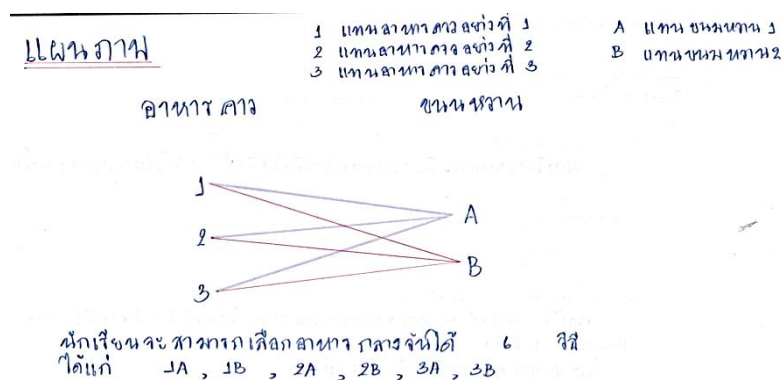 แผนภาพ
1 แทนอาหารคาวอย่างที่ 1
2 แทนอาหารคาวอย่างที่ 2
3 แทนอาหารคาวอย่างที่ 3
A แทนขนมหวาน 1
B แทนขนมหวาน 2
อาหารคาว ขนมหวาน
1
A
2
B
3
นักเรียนจะสามารถเลือกอาหารกลางวันได้ 6 วิธี
ได้แก่ 1A , 1B , 2A , 2B , 3A , 3B